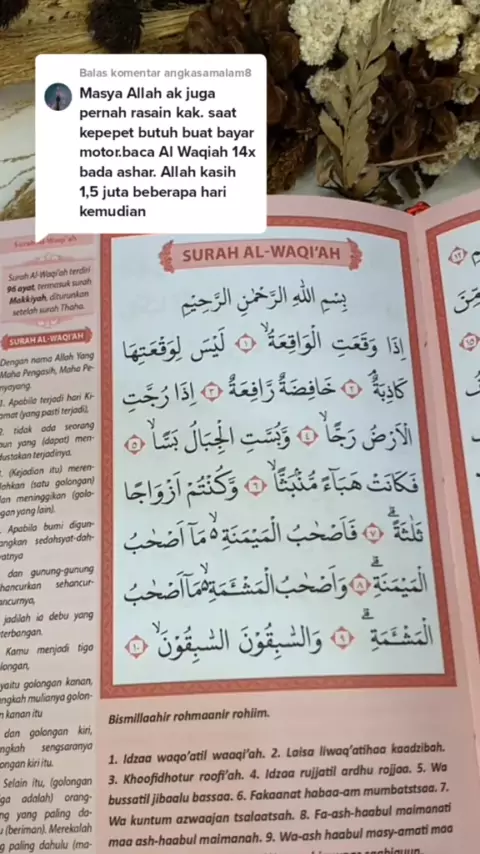 Balas komentar angkasamalam8
Masya Allah ak juga
pernah rasain kak. saat
kepepet butuh buat bayar
motor.baca Al Waqiah 14x
bada ashar. Allah kasih
1,5 juta beberapa hari
kemudian
Surah Al-Waqi'ah terdiri
96 ayat, termasuk surah
Makkiyah, diturunkan
setelah surah Thaha.
SURAH AL-WAQI'AH
Dengan nama Allah Yang
Maha Pengasih, Maha Pe-
nyayang.
1. Apabila terjadi hari Ki-
amat (yang pasti terjadi),
2. tidak ada seorang
pun yang (dapat) men-
dustakan terjadinya.
3. (Kejadian itu) meren-
dahkan (satu golongan)
dan meninggikan (golo-
ngan yang lain).
Apabila bumi digun-
cangkan sedahsyat-dah-
syatnya
dan gunung-gunung
dihancurkan sehancur-
hancurnya,
jadilah ia debu yang
beterbangan.
Kamu menjadi tiga
golongan,
yaitu golongan kanan,
alangkah mulianya golon-
gan kanan itu
dan golongan kiri,
alangkah sengsaranya
golongan kiri itu.
Selain itu, (golongan
tiga adalah) orang-
orang yang paling da-
hulu (beriman). Merekalah
yang paling dahulu (ma-
SURAH AL-WAQI'AH
بِسْمِ اللهِ الرَّحْمٰنِ الرَّحِيْمِ
اِذَا وَقَعَتِ الْوَاقِعَةُۙ ١ لَيْسَ لِوَقْعَتِهَا
كَاذِبَةٌۘ ٢ خَافِضَةٌ رَّافِعَةٌ ٣ اِذَا رُجَّتِ
الْاَرْضُ رَجًّاۙ ٤ وَّبُسَّتِ الْجِبَالُ بَسًّاۙ ٥
فَكَانَتْ هَبَاۤءً مُّنْۢبَثًّاۙ ٦ وَّكُنْتُمْ اَزْوَاجًا
ثَلٰثَةًۗ ٧ فَاَصْحٰبُ الْمَيْمَنَةِ ەۙ مَآ اَصْحٰبُ
الْمَيْمَنَةِۗ ٨ وَاَصْحٰبُ الْمَشْـَٔمَةِ ەۙ مَآ اَصْحٰبُ
الْمَشْـَٔمَةِۗ ٩ وَالسّٰبِقُوْنَ السّٰبِقُوْنَۙ ١٠
Bismillaahir rohmaanir rohiim.
1. Idzaa waqo'atil waaqi'ah. 2. Laisa liwaq'atihaa kaadzibah.
3. Khoofidhotur roofi'ah. 4. Idzaa rujjatil ardhu rojjaa. 5. Wa
bussatil jibaalu bassaa. 6. Fakaanat habaa-am mumbatstsaa. 7.
Wa kuntum azwaajan tsalaatsah. 8. Fa-ash-haabul maimanati
maa ash-haabul maimanah. 9. Wa-ash haabul masy-amati maa